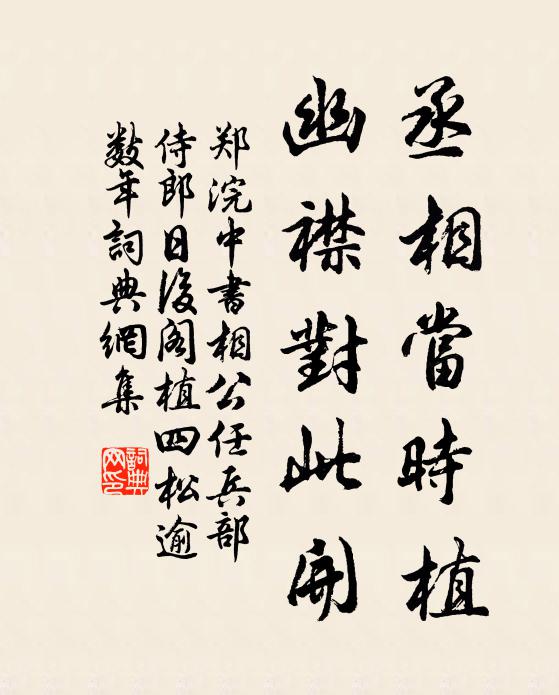 丞相當時植
幽襟對此開
郑浣中書相公任兵部
侍郎日後阁植四松逾
数年詞典網集
詞典网印